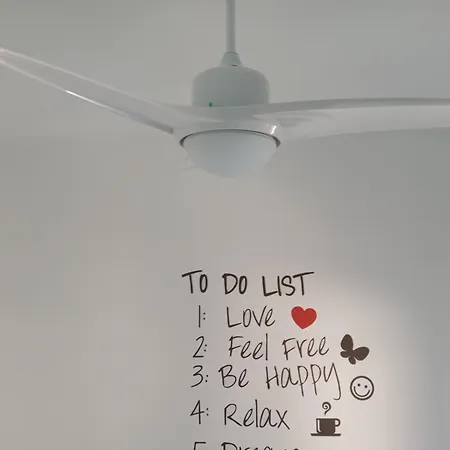 TO DO LIST
1: LOVE
2: Feel FRee
3: Be HAPPY
4: Relax
5: